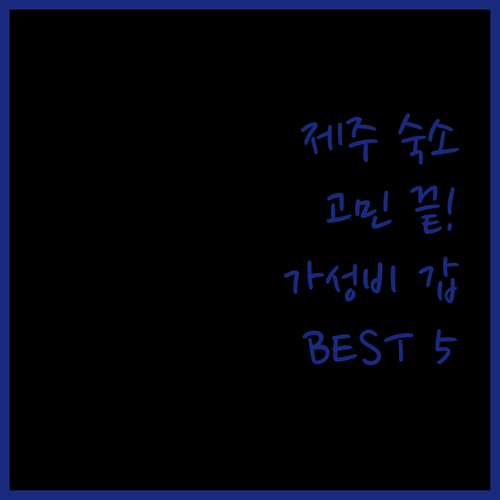 제주 숙소
고민 끝!
가성비 갑
BEST 5